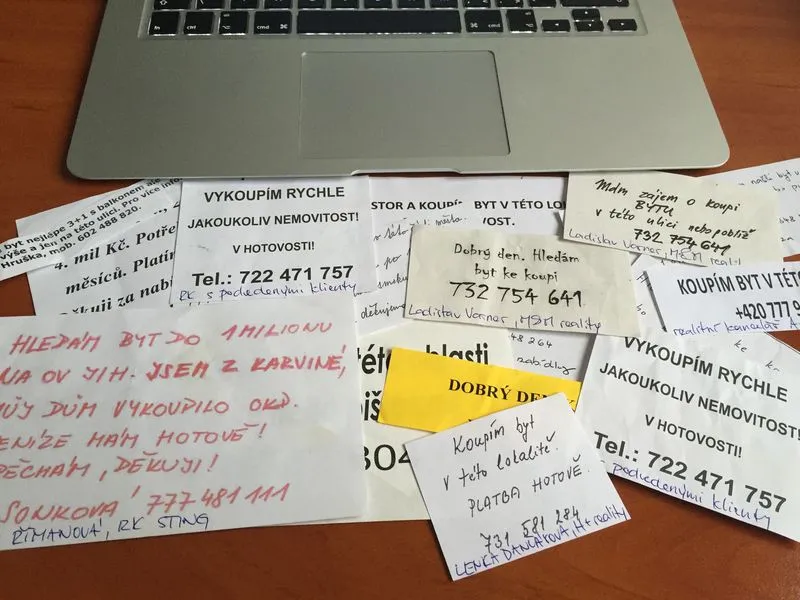 fn
ctrl
alt
cmd
⌘
cmd
⌘
alt
být nejlépe 3+1 s balkonem ale
výše a jen na této ulici. Pro více info
Hruška, mob. 602 488 820.
4. mil Kč. Potře
měsíců. Platím
VYKOUPÍM RYCHLE
JAKOUKOLIV NEMOVITOST!
V HOTOVOSTI!
Tel.: 722 471 757
RK s podvedenými klienty
STOR A KOUPÍM BYT V TÉTO LO
VOST.
děkujeme
Dobrý den. Hledám
byt ke koupi
732 754 641
Ladislav Varner, M&M reality
Mám zájem o koupi
BYTU
v této ulici nebo poblíž
732 754 641
Ladislav Varner, M&M realit
KOUPÍM BYT V TÉTO
+420777 9
realitní kancelář A
HLEDÁM BYT DO 1MILIONU
NA OV JIH. JSEM Z KARVINÉ,
MŮJ DŮM VYKOUPILO OKD.
ENÍZE MÁM HOTOVĚ!
PĚCHÁM, DĚKUJI!
SONKOVÁ 777 481 111
ŘÍMANOVÁ, RK STING
této oblasti
804
48 264
nabídky
DOBRÝ DEN
Koupím byt
v této lokalitě.
PLATBA HOTOVĚ.
731 581 284
LENKA DANČÁKOVÁ, H+reality
VYKOUPÍM RYCHLE
JAKOUKOLIV NEMOVITOST!
V HOTOVOSTI!
Tel.: 722 471 757
podvedenými klienty